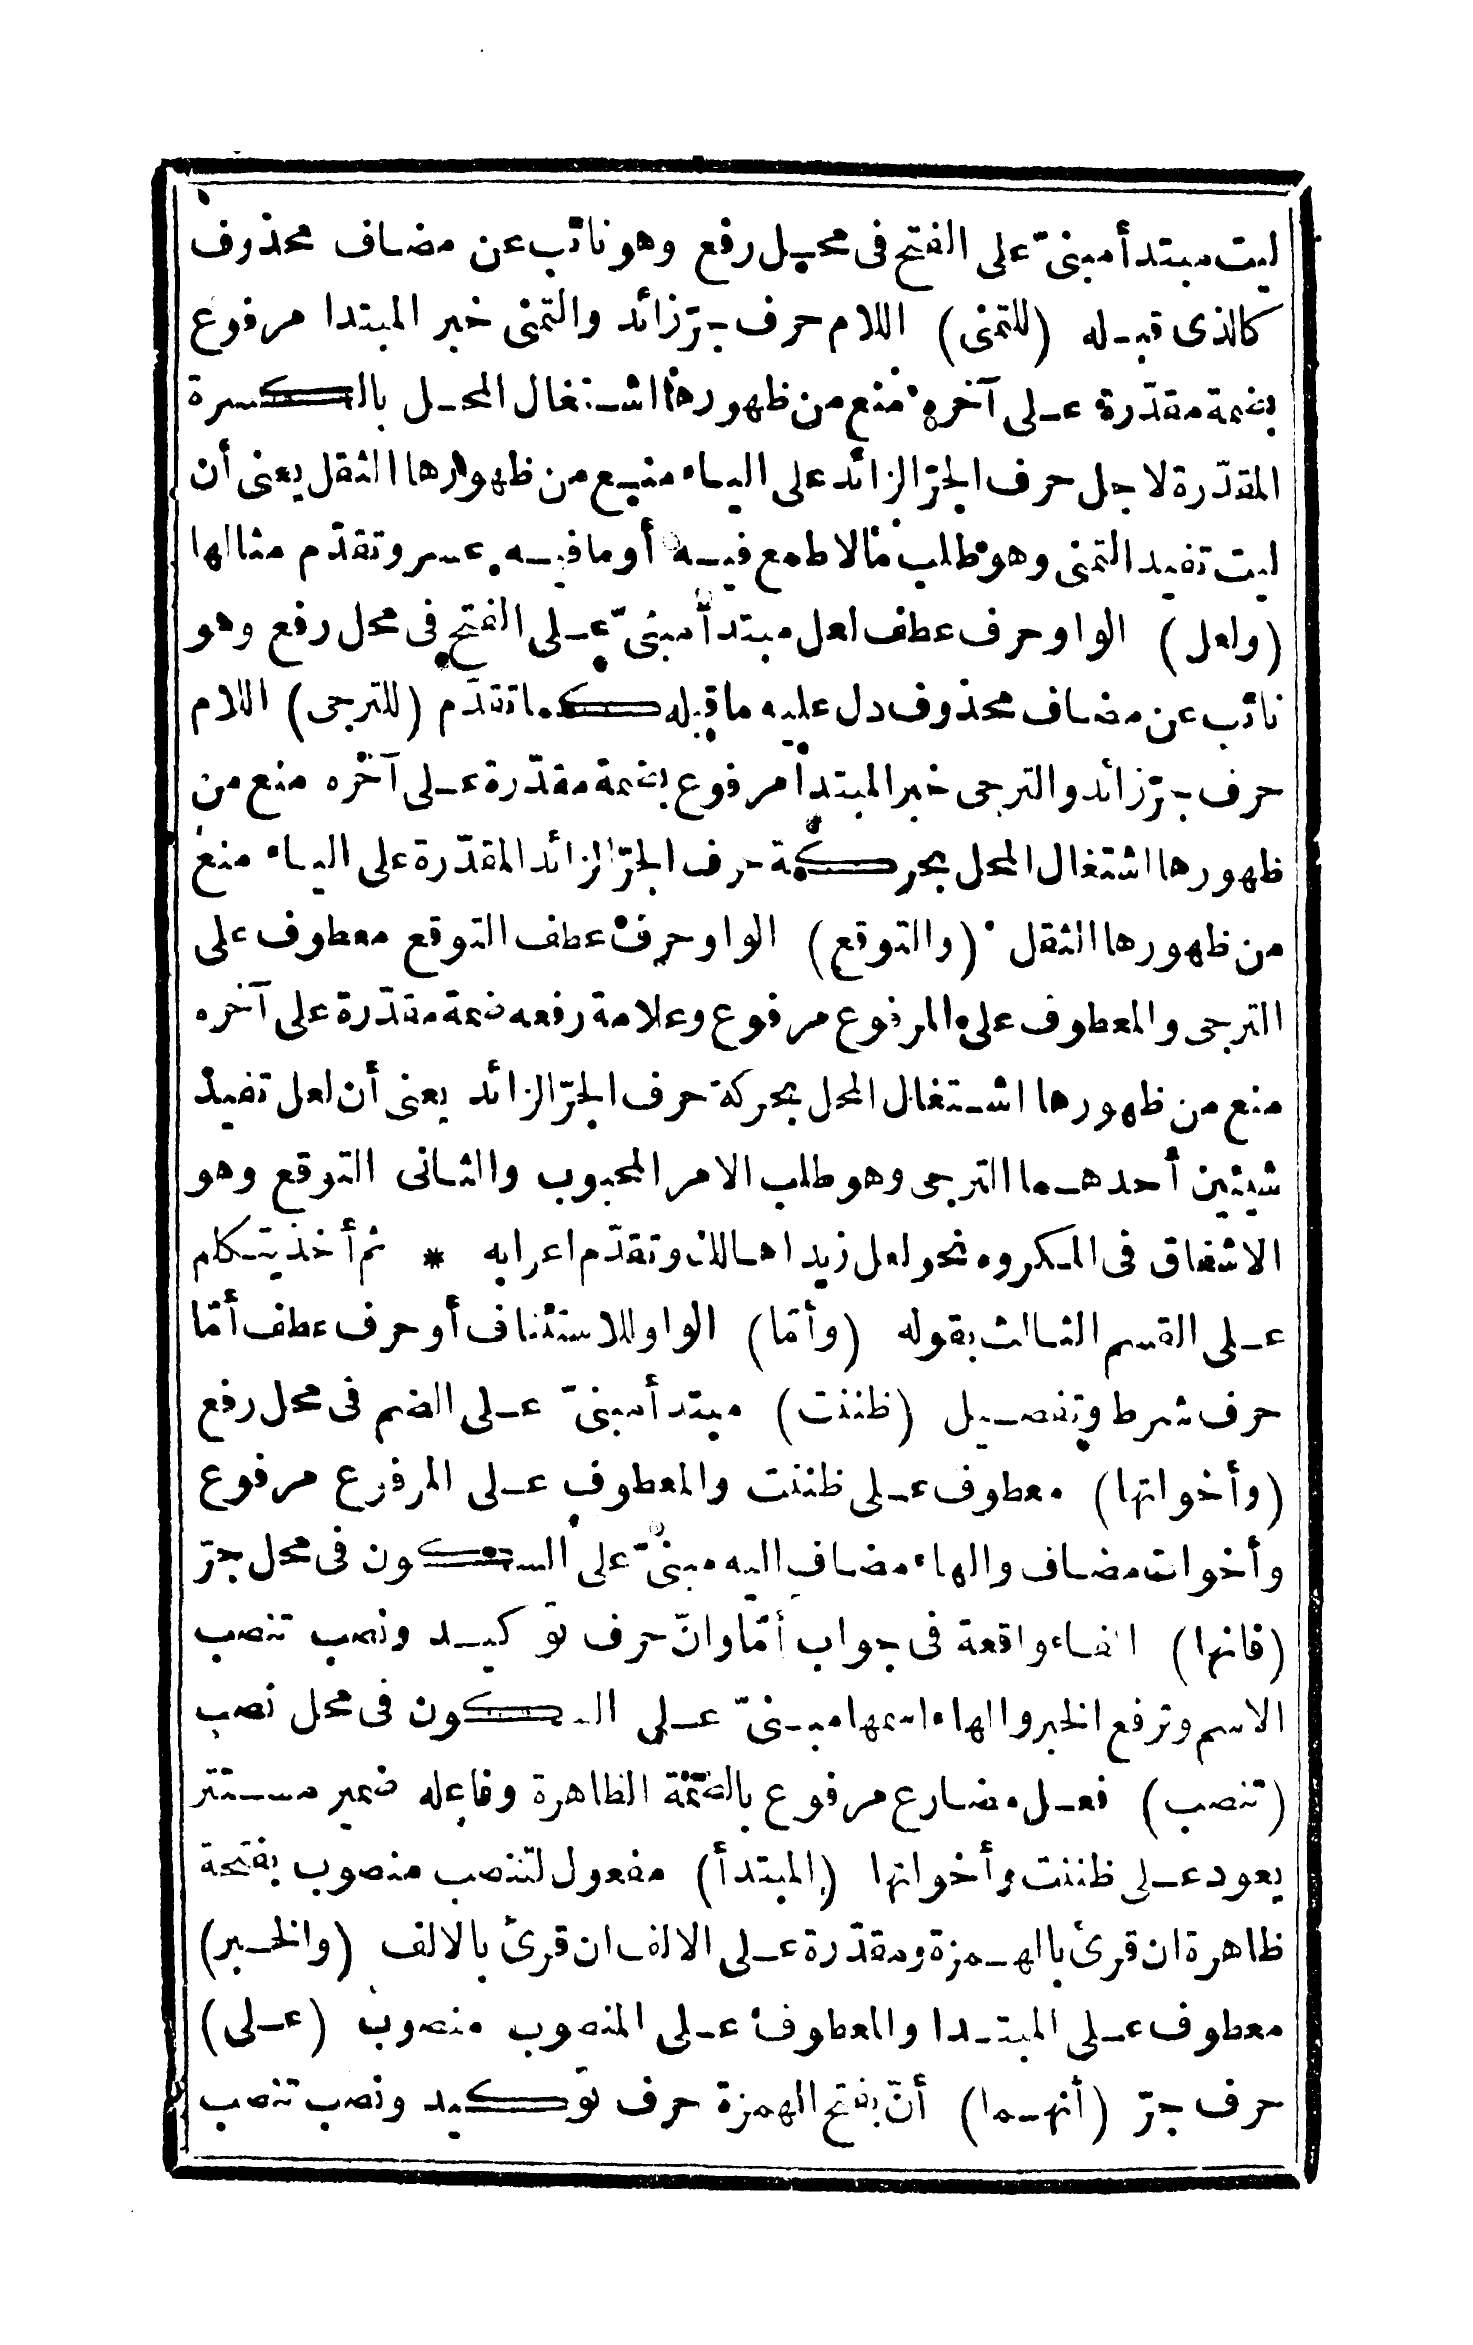 ليت مبتدأ مبنىّ على الفتح فى محل رفع وهو نائب عن مضاف محذوف
كالذى قبله (للتمنى) اللام حرف جرّ زائد والتمنى خبر المبتدا مرفوع
بضمة مقدّرة على آخره منع من ظهورها اشتغال المحل بالكسرة
المقدّرة لاجل حرف الجرّ الزائد على الياء منع من ظهورها الثقل يعنى أن
ليت تفيد التمنى وهو طلب مالا طمع فيه أو ما فيه عسر وتقدّم مثالها
(ولعل) الواو حرف عطف لعل مبتدأ مبنىّ على الفتح فى محل رفع وهو
نائب عن مضاف محذوف دل عليه ما قبله كما تقدّم (للترجى) اللام
حرف جرّ زائد والترجى خبر المبتدأ مرفوع بضمة مقدّرة على آخره منع من
ظهورها اشتغال المحل بحركة حرف الجرّ الزائد المقدّرة على الياء منع
من ظهورها الثقل (والتوقع) الواو حرف عطف التوقع معطوف على
الترجى والمعطوف على المرفوع مرفوع وعلامة رفعه ضمة مقدّرة على آخره
منع من ظهورها اشتغال المحل بحركة حرف الجرّ الزائد يعنى أن لعل تفيد
شيئين أحدهما الترجى وهو طلب الامر المحبوب والثانى التوقع وهو
الاشفاق فى المكروه نحو لعل زيدا هالك وتقدّم اعرابه * ثم أخذ يتكلم
على القسم الثالث بقوله (وأمّا) الواو للاستئناف أو حرف عطف أمّا
حرف شرط وتفصيل (ظننت) مبتدأ مبنىّ على الضم فى محل رفع
(وأخواتها) معطوف على ظننت والمعطوف على المرفوع مرفوع
وأخوات مضاف والهاء مضاف اليه مبنىّ على السكون فى محل جرّ
(فانها) الفاء واقعة فى جواب أمّا وانّ حرف توكيد ونصب تنصب
الاسم وترفع الخبر والهاء اسمها مبنىّ على السكون فى محل نصب
(تنصب) فعل مضارع مرفوع بالضمّة الظاهرة وفاعله ضمير مستتر
يعود على ظننت وأخواتها (المبتدأ) مفعول لتنصب منصوب بفتحة
ظاهرة ان قرئ بالهمزة ومقدّرة على الالف ان قرئ بالالف (والخبر)
معطوف على المبتدا والمعطوف على المنصوب منصوب (على)
حرف جرّ (أنهما) أنّ بفتح الهمزة حرف توكيد ونصب تنصب